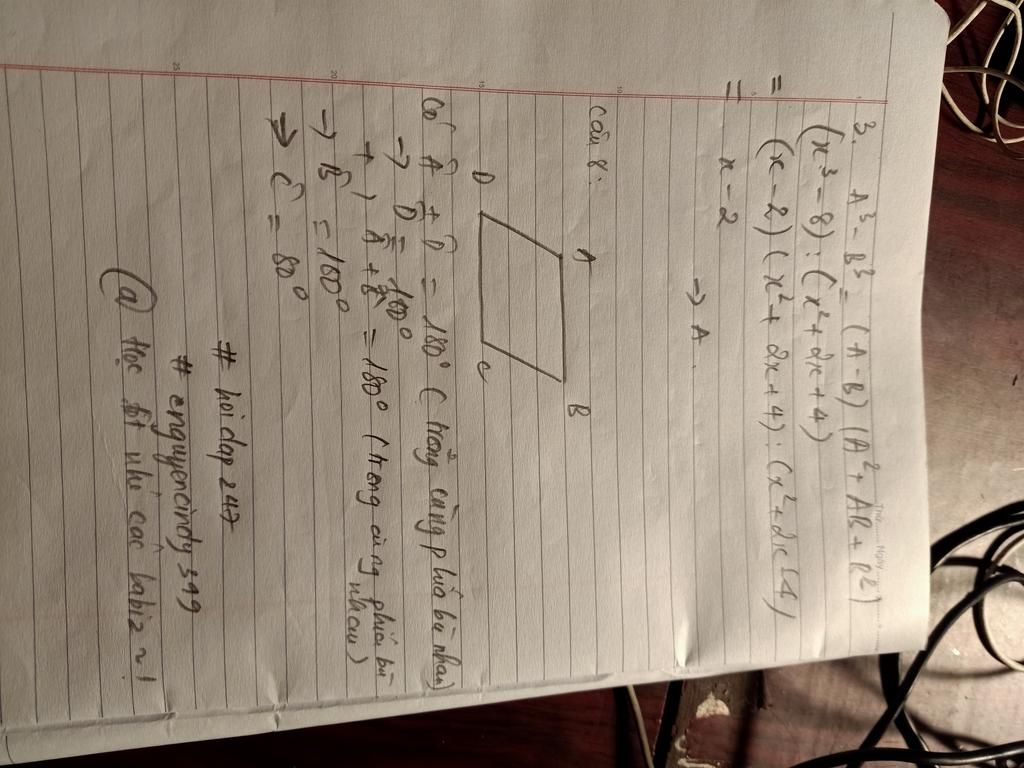 3. A³ - B³ = (A - B) (A² + AB + B²)
(x³ - 8) : (x² + 2x + 4)
= (x - 2) (x² + 2x + 4) : (x² + 2x + 4)
= x - 2
→ A.
Câu 8:
A B
D C
Có Â + D̂ = 180° (trong cùng phía bù nhau)
→ D̂ = 100°
+, Â + B̂ = 180° (trong cùng phía bù nhau)
→ B̂ = 100°
→ Ĉ = 80°
# hoidap247
# anguyencindy
@ Học tốt nhé các babiz ~!